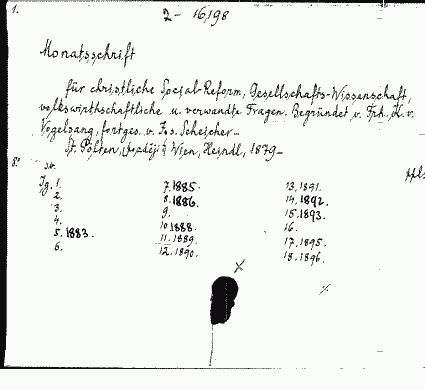 1.
2- 16,198
Monatsschrift
für christliche Social-Reform, Gesellschafts-Wissenschaft,
volkswirthschaftliche u. verwandte Fragen. Begründet v. Frh. K. v.
Vogelsang, fortges. v. Jos. Scheicher.-
St. Pölten, Wien, Heindl, 1879-
8.º
Jg. 1. 7. 1885. 13. 1891.
2. 8. 1886. 14. 1892.
3. 9. 15. 1893.
4. 10. 1888. 16.
5. 1883. 11. 1889. 17. 1895.
6. 12. 1890. 18. 1896.